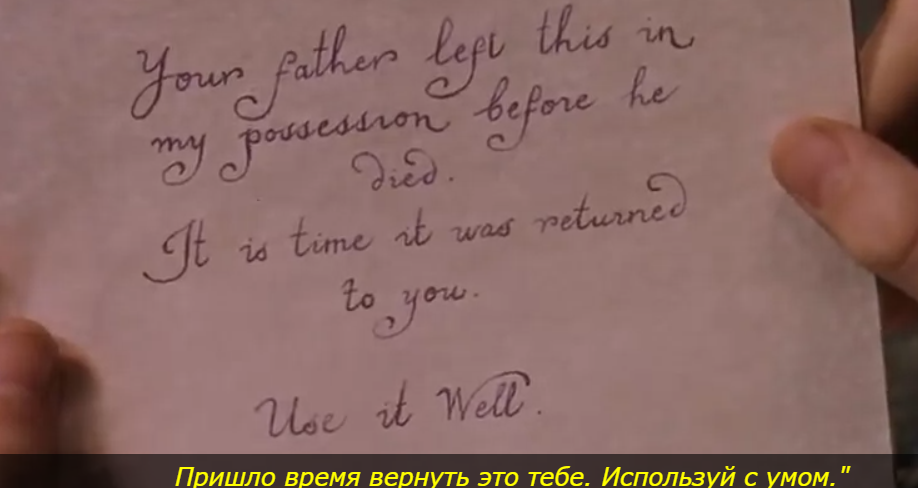 Your father left this in
my possession before he
died.
It is time it was returned
to you.
Use it Well.
Пришло время вернуть это тебе. Используй с умом."